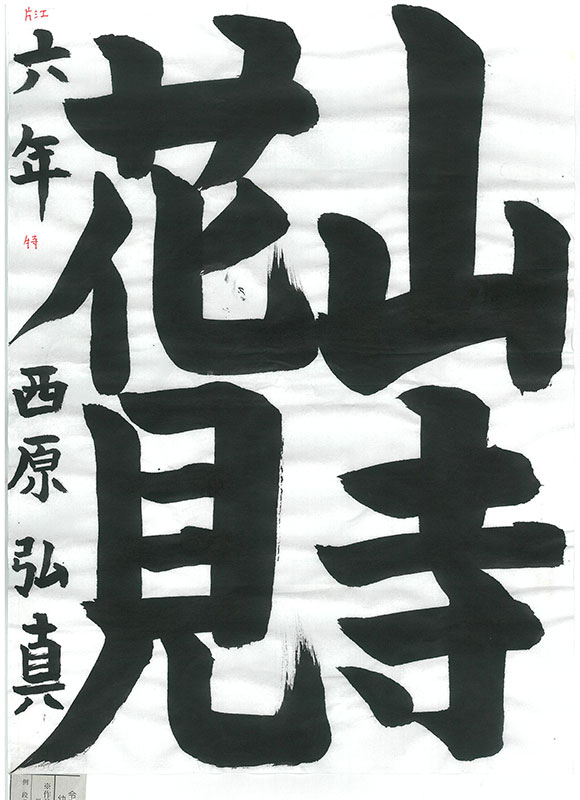 山寺
花見
片江
六年
特
西原弘真